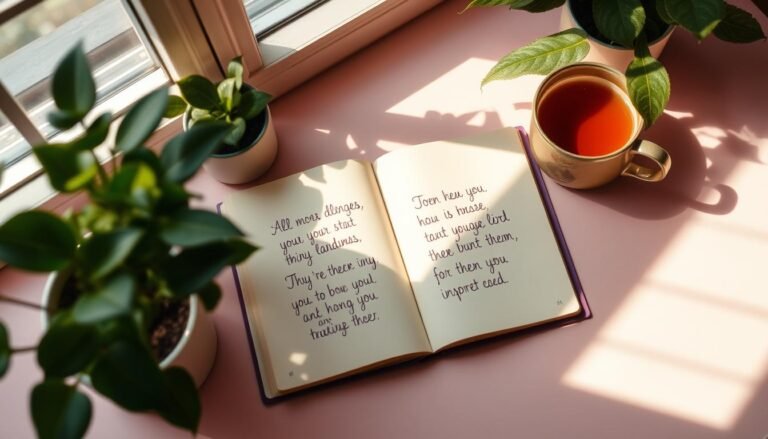 All mors dlenges,
your your start
thiny landinss,
They're therk iny
you to bow youl
ant hong you
are
truxing thoer.
Toren heu you
hou is hrase,
tart youge lird
thex bunt them,
for then you
inpret coed.